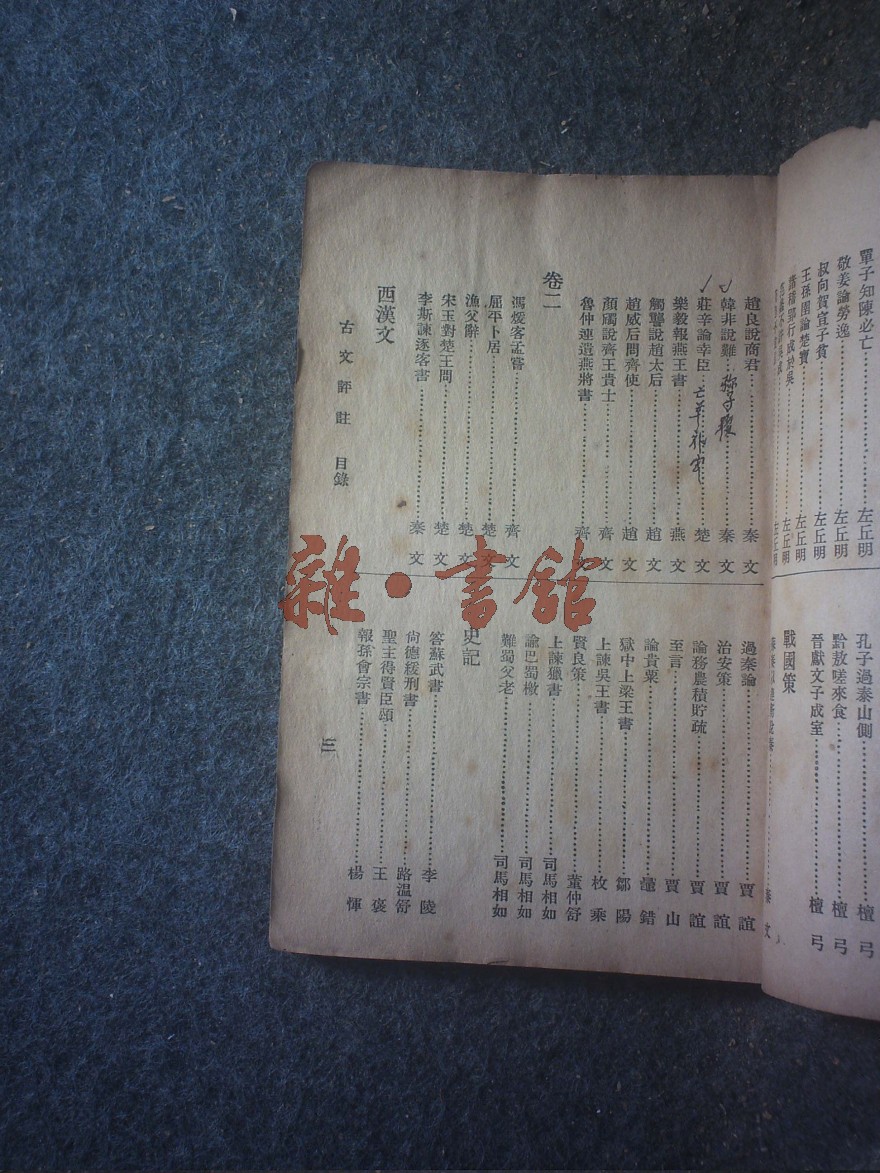 單子知陳必亡 左丘明
敬姜論勞逸 左丘明
叔向賀宣子貧 左丘明
王孫圉論楚寶 左丘明
諸稽郢行成於吳 左丘明
左丘明
孔子過泰山側 檀弓
黔敖嗟來食 檀弓
晉獻文子成室 檀弓
戰國策
秦文
趙良說商君 秦文
韓非說難 秦文
莊辛論幸臣 楚文
亡羊補牢
樂毅報燕王書 燕文
觸讋說趙太后 趙文
趙威后問齊使 趙文
顏斶說齊王貴士 齊文
魯仲連遺燕將書 齊文
卷二
馮煖客孟嘗 齊文
屈平卜居 楚文
漁父辭 楚文
宋玉對楚王問 楚文
李斯諫逐客書 秦文
西漢文
過秦論 賈誼
治安策 賈誼
論務農積貯疏 賈誼
至言 賈山
論貴粟 鼂錯
獄中上梁王書 鄒陽
上諫吳王書 枚乘
賢良策 董仲舒
上諫獵書 司馬相如
諭巴蜀檄 司馬相如
難蜀父老 司馬相如
史記
答蘇武書 李陵
尚德緩刑書 路溫舒
聖主得賢臣頌 王褒
報孫會宗書 楊惲
古文評註 目錄
三
雜·書館